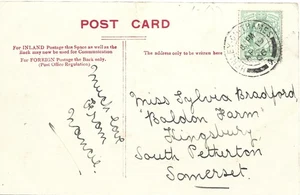 POST CARD
For INLAND Postage this Space as well as the
Back may now be used for Communication.
For FOREIGN Postage the Back only.
(Post Office Regulation)
The address only to be written here
much love
from
Miss Sylvia Bradford
"Baldon Farm"
Kingsbury
South Petherton
Somerset.